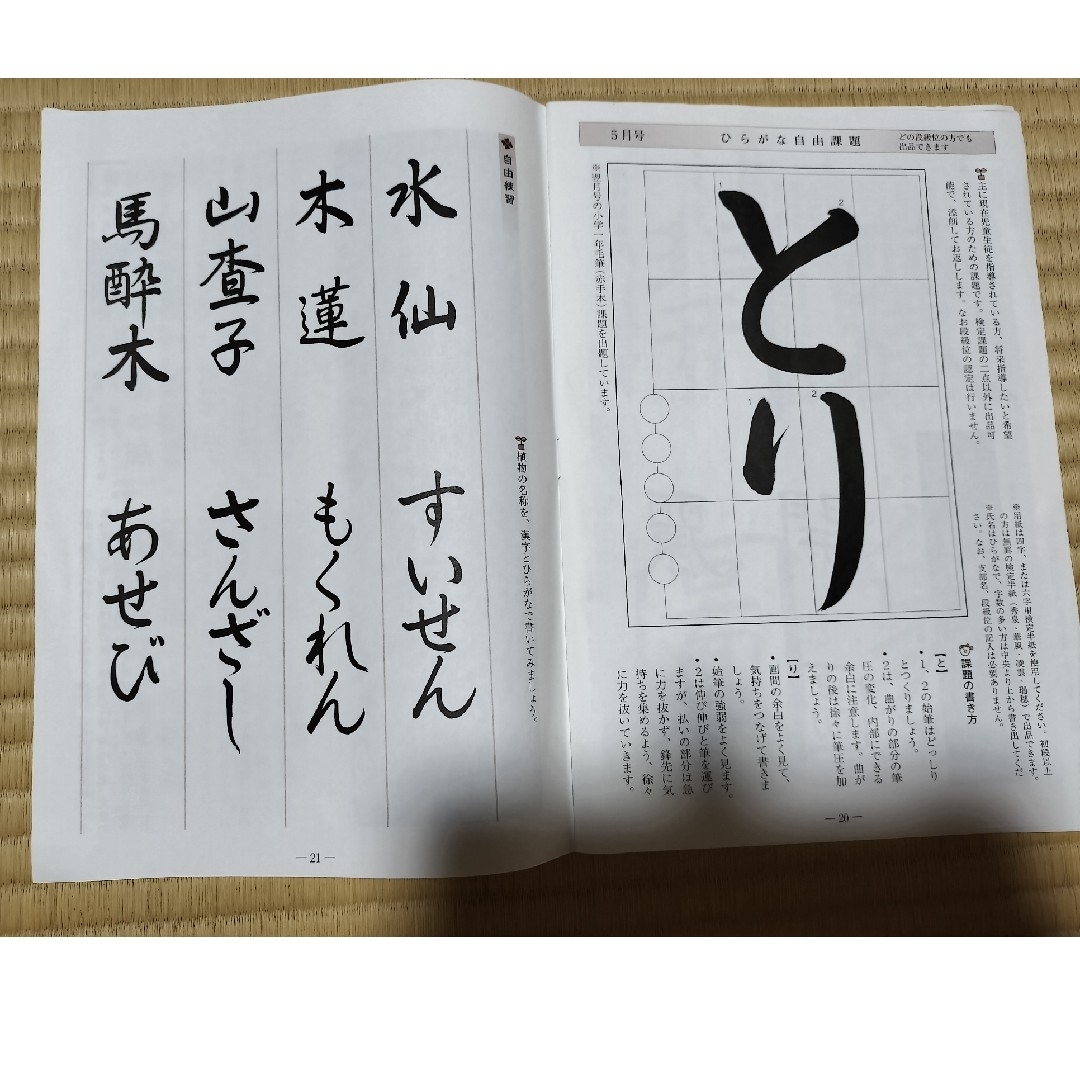 5月号
ひらがな自由課題
どの段級位の方でも
出品できます
主に現在児童生徒を指導されている方、将来指導したいと希望
されている方のための課題です。検定課題の二点以外に出品可
能で、添削してお返しします。なお段級位の認定は行いません。
とり
1
2
1
2
※翌月号の小学一年毛筆(赤手本)課題を出題しています。
※用紙は四字、または六字用検定半紙を使用してください。初段以上
の方は無罫の検定半紙(秀泉・藤風・凌雲・瑞穂)で出品できます。
※氏名はひらがなで、字数の多い方は中央より上から書き出してくだ
さい。なお、支部名、段級位の記入は必要ありません。
課題の書き方
【と】
・1、2の始筆はどっしり
とつくりましょう。
・2は、曲がりの部分の筆
圧の変化、内部にできる
余白に注意します。曲が
りの後は徐々に筆圧を加
えましょう。
【り】
・画間の余白をよく見て、
気持ちをつなげて書きま
しょう。
・始筆の強弱をよく見ます。
・2は伸び伸びと筆を運び
ますが、払いの部分は急
に力を抜かず、鋒先に気
持ちを集めるよう、徐々
に力を抜いていきます。
—20—
自由練習
植物の名称を、漢字とひらがなで書いてみましょう。
水仙 すいせん
木蓮 もくれん
山査子 さんざし
馬酔木 あせび
—21—